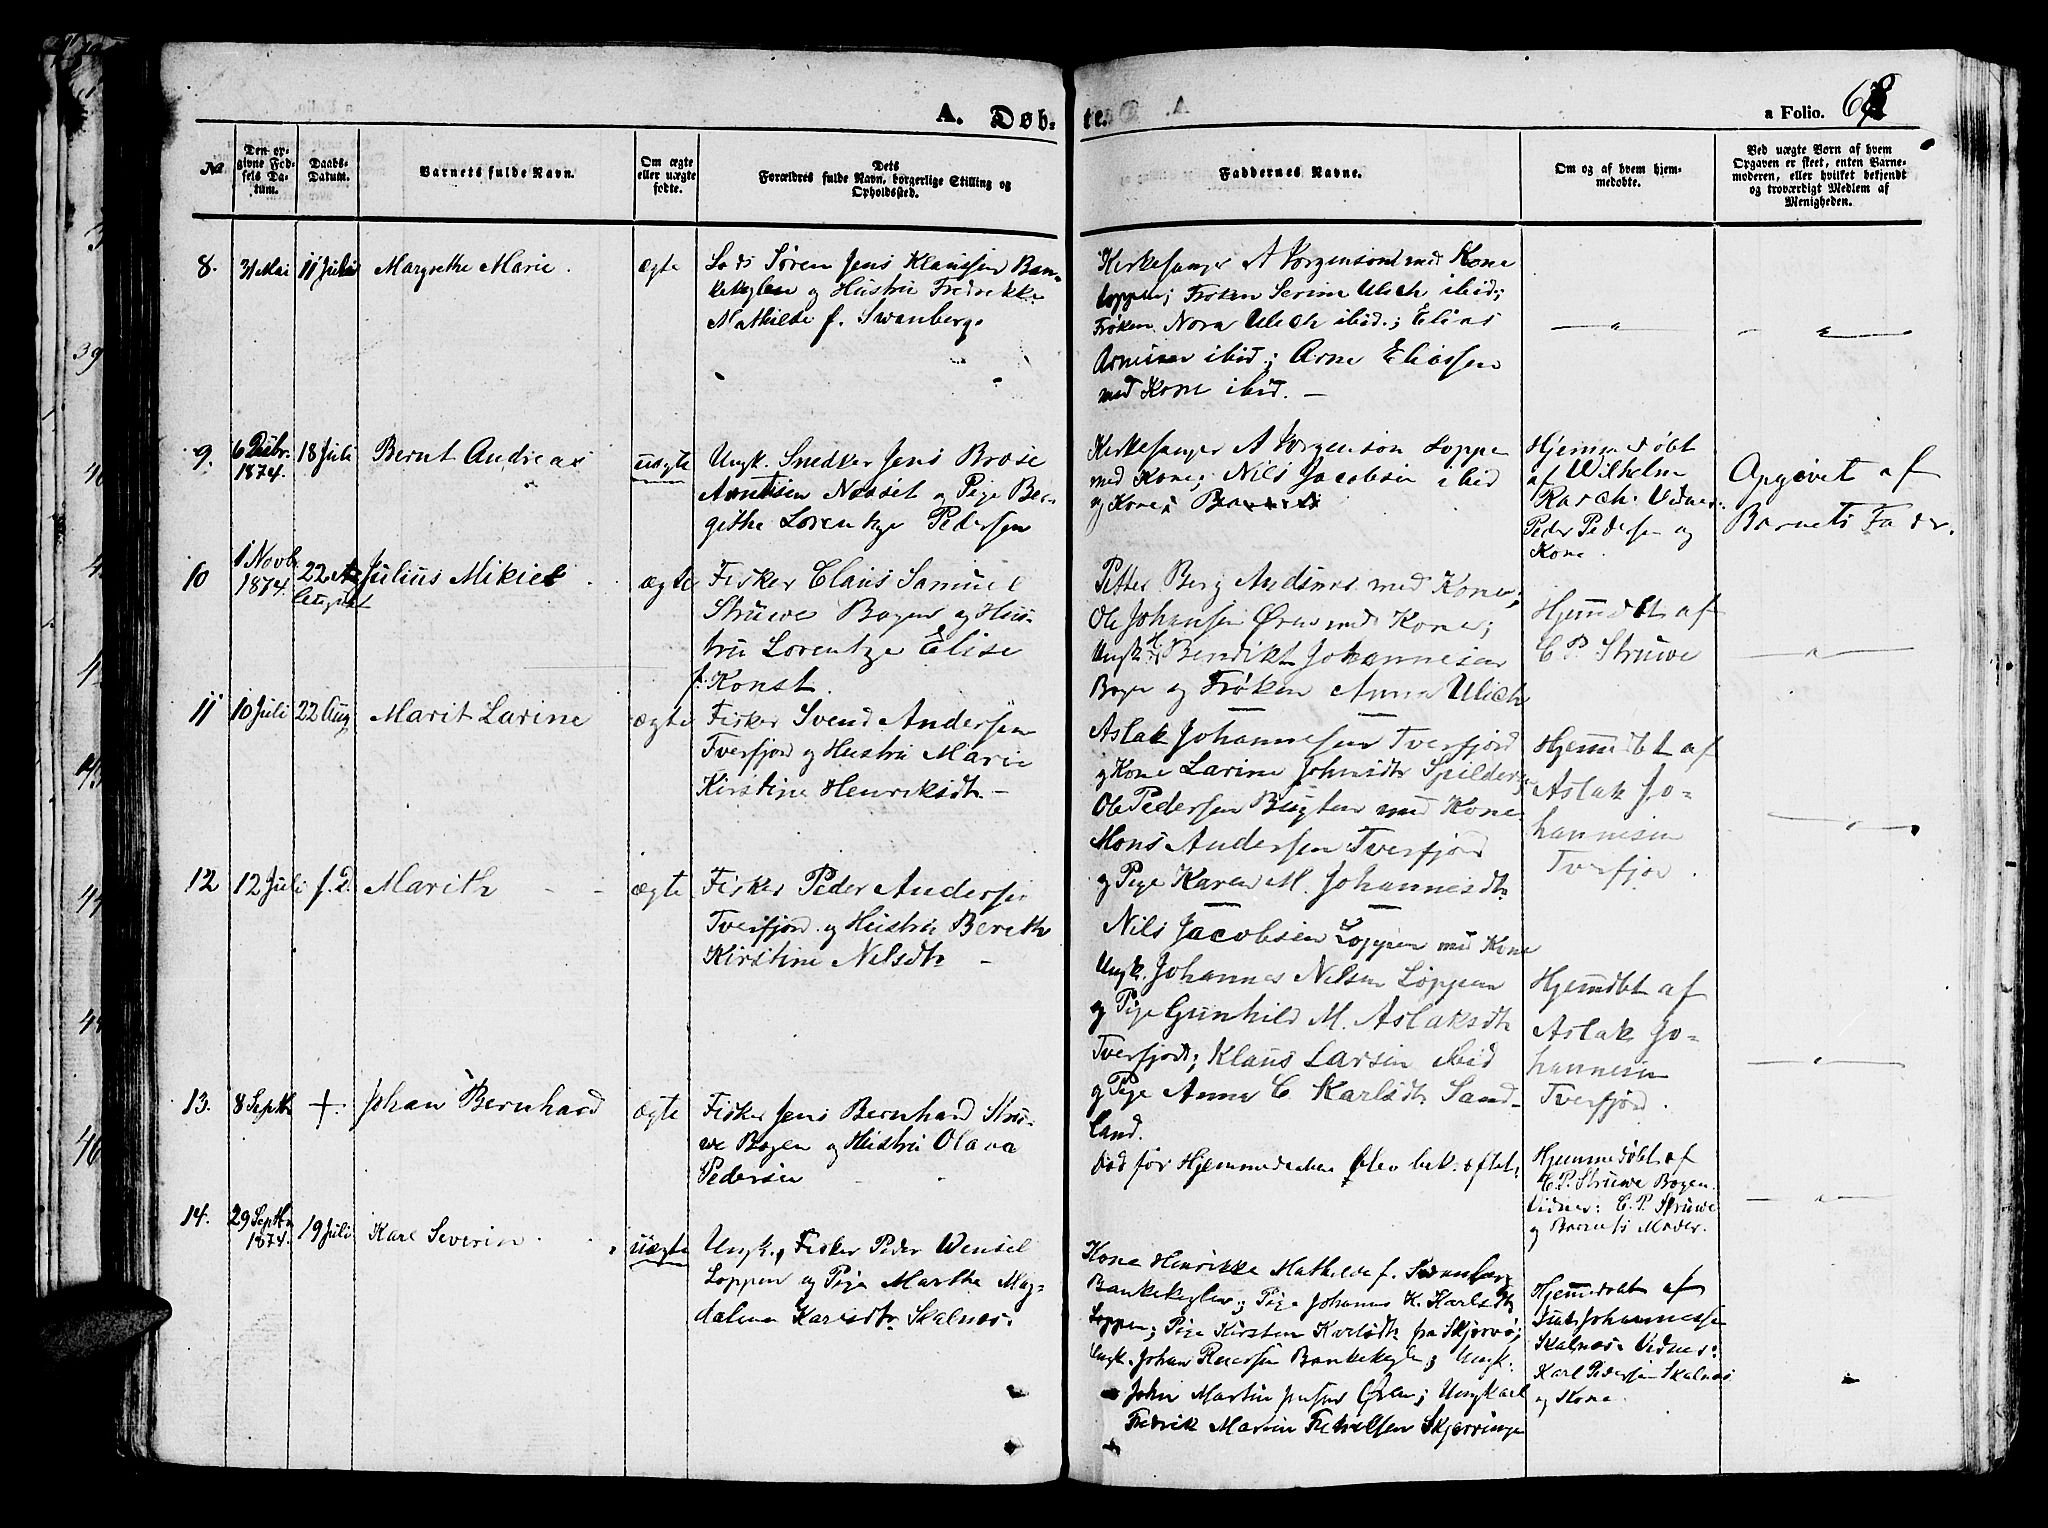 A. Døb-
te.
a Folio. 68
No.
Den op-
givne Fød-
sels Da-
tum.
Daabs-
Datum.
Barnets fulde Navn.
Om ægte
eller uægte
fødte.
Dets
Forældres fulde Navn, borgerlige Stilling og
Opholdssted.
Faddernes Navne.
Om og af hvem hjem-
medøbte.
Ved uægte Børn af hvem
Opgaven er skeet, enten Barne-
moderen, eller hvilket bekjendt
og troværdigt Medlem af
Menigheden.
8.
31 Mai
11 Juli
Margrethe Marie.
ægte
Lods Søren Jens Klaussen Ban-
kekeglen og Hustru Fredrikke
Mathilde f. Swanberg.
Kirkesanger A Jørgenson med Kone
Loppen; Frøken Serine Ulich ibid;
Frøken Nora Ulich ibid.; Elias
Arnesen ibid; Arne Eliassen
med Kone ibid. —
9.
6 Debr.
1874.
18 Juli
Bernt Andreas
uægte
Ungk. Snedker Jens Brose
Arntsen Næsset og Pige Ber-
githe Lorentze Pedersen
Kirkesanger A Jørgenson Loppe
med Kone; Nils Jacobsen ibid
og Kone;
Hjemmedøbt
af Wilhelm
Rasch. Vidner.
Peder Pedersen og
Kone.
Opgivet af
Barnets Fader.
10
1 Novbr
1874.
22
August
Julius Mikiel
ægte
Fisker Claus Samuel
Struwe Bogen og Hus-
tru Lorentze Elise
f. Konst.
Petter Berg Andsnes med Kone;
Ole Johansen Øren med Kone;
Ungk. Bendikt Johannesen
Bogen og Frøken Anna Ulich
Hjemdbt af
C P. Struwe
11
10 Juli
22 Aug
Marit Larine
ægte
Fisker Svend Andersen
Tverfjord og Hustru Marie
Kirstine Henriksdtr. —
Aslak Johannesen Tverfjord
og Kone Larine Johnsdtr Spilderen
Ole Pedersen Bugten med Kone
Mons Andersen Tverfjord
og Pige Karen M. Johannesdtr
Hjemdbt af
Aslak Jo-
hannesen
Tverfjor.
12
12 Juli
f. D.
Marith
ægte
Fisker Peder Andersen
Tverfjord og Hustru Bereth
Kirstine Nilsdtr —
Nils Jacobsen Loppen med Kone
Ungk. Johannes Nilsen Loppen
og Pige Gunhild M. Aslaksdtr
Tverfjord; Klaus Larsen ibid
og Pige Anna C. Karlsdtr Sand-
land.
Hjemdbt af
Aslak Jo-
hannesen
Tverfjord.
13.
8 Septb
+.
Johan Bernhard
ægte
Fisker Jens Bernhard Stru-
we Bogen og Hustru Olava
Pedersen
Død før Hjemmedaaben blev bekræftet.
Hjemmedøbt af
C. P. Struwe Bogen.
Vidner: C. P Struwe
og Barnets Moder.
14.
29 Septbr
1874.
19 Juli
Karl Severin
uægte
Ungk. Fisker Peder Wensel
Loppen og Pige Marthe Mag-
dalena Karlsdtr Skalnæs.
Kone Henrikke Mathilde f. Swanberg
Bankekeglen; Pige Johanna K. Karlsdtr
Loppen; Pige Kirsten Karlsdtr fra Skjervø;
Ungk. Johan Bankekeglen; Ungk.
John Martin Jensen Øren; Ungkarl
Fredrik Martin Skjervinge
Hjemmedøbt af
Johannessen
Skalnæs. Vidner:
Karl Pedersen Skalnæs
og Kone.